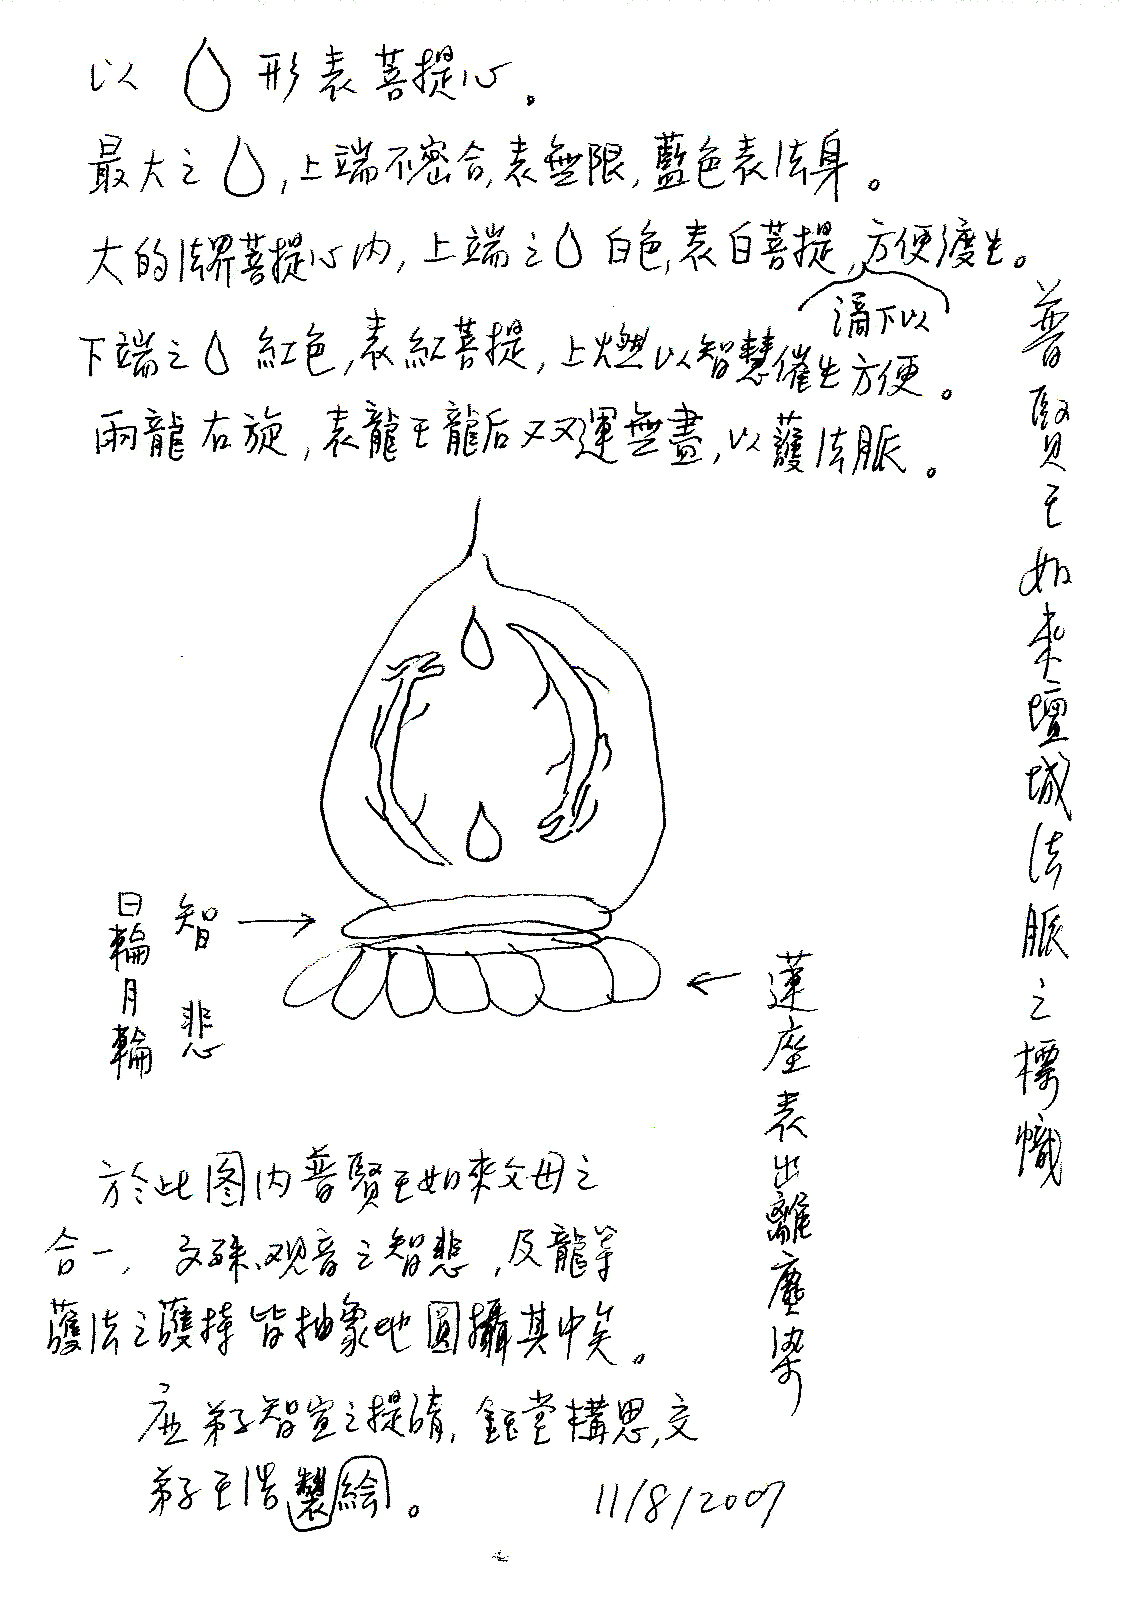 普賢王如来壇城法脈之標幟
以 形表菩提心。
最大之 ,上端不密合,表無限,藍色表法身。
大的法界菩提心内,上端之 白色,表白菩提,方便渡生。
滴下以
下端之 紅色,表紅菩提,上燃以智慧催生方便。
兩龍右旋,表龍王龍后双运無盡,以護法脈。
智 悲
日輪月輪
蓮座表出離塵染
於此图内普賢王如來父母之
合一,文殊、观音之智悲,及龍等
護法之護持皆抽象地圓攝其中矣。
应弟子智宣之提請,鈺堂構思,交
弟子王浩製繪。 11/8/2007